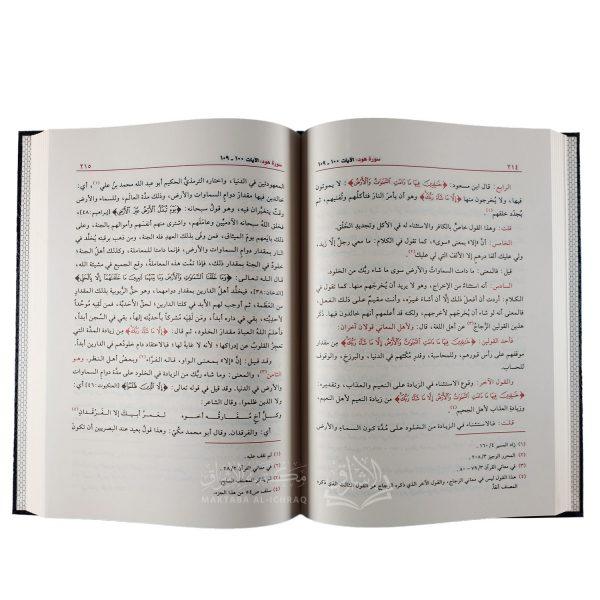 ٢١٤
سورة هود: الآيات ١٠٠ - ١٠٩
الرابع: قال ابن مسعود: ﴿خَٰلِدِينَ فِيهَا مَا دَامَتِ ٱلسَّمَٰوَٰتُ وَٱلْأَرْضُ﴾: لا يموتون
فيها، ولا يُخرجون منها ﴿إِلَّا مَا شَآءَ رَبُّكَ﴾ وهو أن يأمرَ النارَ فتأكلَهم وتُفنيهم، ثم
يُجدِّد خلقهم(١).
قلت: فهذا القول خاصٌّ بالكافر والاستثناء له في الأكل وتجديد الخَلْق.
الخامس: أنَّ «إلا» بمعنى سوى، كما تقول في الكلام: ما معي رجلٌ إلا زيد،
ولي عليك ألفا درهم إلا الألف التي لي عليك.
قيل: فالمعنى: ما دامت السماواتُ والأرض سوى ما شاء ربُّك من الخلود.
السادس: أنه استثناءٌ من الإخراج، وهو لا يريد أن يخرجهم منها، كما تقول في
الكلام: أردتُ أن أفعل ذلك إلَّا أن أشاء غيرَه، وأنت مقيمٌ على ذلك الفعل،
فالمعنى أنه لو شاء أن يُخرجهم لأخرجهم، ولكنه قد أعلمهم أنهم خالدون فيها. ذكر
هذين القولين الزَّجاج(٢) عن أهل اللغة، قال: ولأهل المعاني قولان آخران:
فأحد القولين: ﴿خَٰلِدِينَ فِيهَا مَا دَامَتِ ٱلسَّمَٰوَٰتُ وَٱلْأَرْضُ إِلَّا مَا شَآءَ رَبُّكَ﴾ من مقدار
موقفهم على رأس قبورهم، وللمحاسبة، وقدرِ مُكْثهم في الدنيا، والبرزخ، والوقوف
للحساب.
والقول الآخر: وقوع الاستثناء في الزيادة على النعيم والعذاب، وتقديره:
﴿خَٰلِدِينَ فِيهَا مَا دَامَتِ ٱلسَّمَٰوَٰتُ وَٱلْأَرْضُ إِلَّا مَا شَآءَ رَبُّكَ﴾ من زيادة النعيم لأهل النعيم،
وزيادة العذاب لأهل الجحيم(٤).
قلت: فالاستثناء في الزيادة من الخلود على مُدَّة كون السماء والأرض
(١) زاد المسير ٤/ ١٦٠.
(٢) المحرر الوجيز ٢٠٨/٣.
(٣) في معاني القرآن ٧٩/٣ - ٨٠.
(٤) هذا القول ليس في معاني الزجاج، والقول الآخر الذي ذكره الزجاج هو القول الثالث الذي ذكره
المصنف آنفاً.
سورة هود: الآيات ١٠٠ - ١٠٩
٢١٥
المعهودتين في الدنيا، واختاره الترمذيُّ الحكيم أبو عبد الله محمد بن علي(١)، أي:
خالدين فيها مقدارَ دوام السماوات والأرض، وذلك مدَّة العالَم، وللسماء والأرض
وقتٌ يتغيَّران فيه، وهو قول سبحانه: ﴿يَوْمَ تُبَدَّلُ ٱلْأَرْضُ غَيْرَ ٱلْأَرْضِ﴾ [إبراهيم: ٤٨]،
فخلق اللهُ سبحانه الآدميِّين وعاملَهم، واشترى منهم أنفسَهم وأموالهم بالجنة، وعلى
ذلك بايَعهم يومَ الميثاق، فمن وفى بذلك العهدِ فله الجنة، ومن ذهب برقبته يُخلَّد في
النار بمقدارِ دوام السماوات والأرض، فإنما دامتا للمعاملة، وكذلك أهلُ الجنة؛
خلودٌ في الجنة بمقدار ذلك، فإذا تمَّت هذه المعاملة، وقع الجميعُ في مشيئة الله،
قال الله تعالى: ﴿وَمَا خَلَقْنَا ٱلسَّمَٰوَٰتِ وَٱلْأَرْضَ وَمَا بَيْنَهُمَا لَٰعِبِينَ مَا خَلَقْنَٰهُمَآ إِلَّا بِٱلْحَقِّ﴾
[الدخان: ٣٨]، فيخلِّد أهلَ الدارين بمقدار دوامهما، وهو حقُّ الربوبية بذلك المقدار
من العظَمة، ثم أوجب لهم الأبد في كلتا الدارين لحقِّ الأحديَّة، فمن لَقيَه موحِّداً
لأحديَّته، بقي في داره أبداً، ومن لَقيَه مشركاً بأحديته إلهاً، بقي في السجن أبداً،
فأَعلمَ اللهُ العبادَ مقدارَ الخلود، ثم قال: ﴿إِلَّا مَا شَآءَ رَبُّكَ﴾ من زيادة المدَّة التي
تعجزُ القلوب عن إدراكها؛ لأنه لا غاية لها؛ فبالاعتقاد دام خلودُهم في الدارين أبداً.
وقد قيل: إنَّ «إلا» بمعنى الواو، قاله الفرَّاء(٢) وبعضُ أهل النظر، وهو
الثامن(٣)، والمعنى: وما شاء ربُّك من الزيادة في الخلود على مدَّة دوام السماوات
والأرض في الدنيا. وقد قيل في قوله تعالى: ﴿إِلَّا ٱلَّذِينَ ظَلَمُوا۟﴾ [العنكبوت: ٤٦] أي:
ولا الذين ظلموا. وقال الشاعر:
وكــلُّ أخٍ مُــفــارِقُــه أخــوه لَعَمْــرُ أبيــكَ إلا الفــرقــدانِ(٤)
أي: والفرقدان. وقال أبو محمد مكِّي: وهذا قولٌ بعيد عند البصريين أن تكون
(١) لم نقف عليه.
(٢) في معاني القرآن ٢٨/٢.
(٤) سلف ص٧٤ من هذا الجزء.
مكتبة الإشراق
MAKTABA AL-ICHRAQ